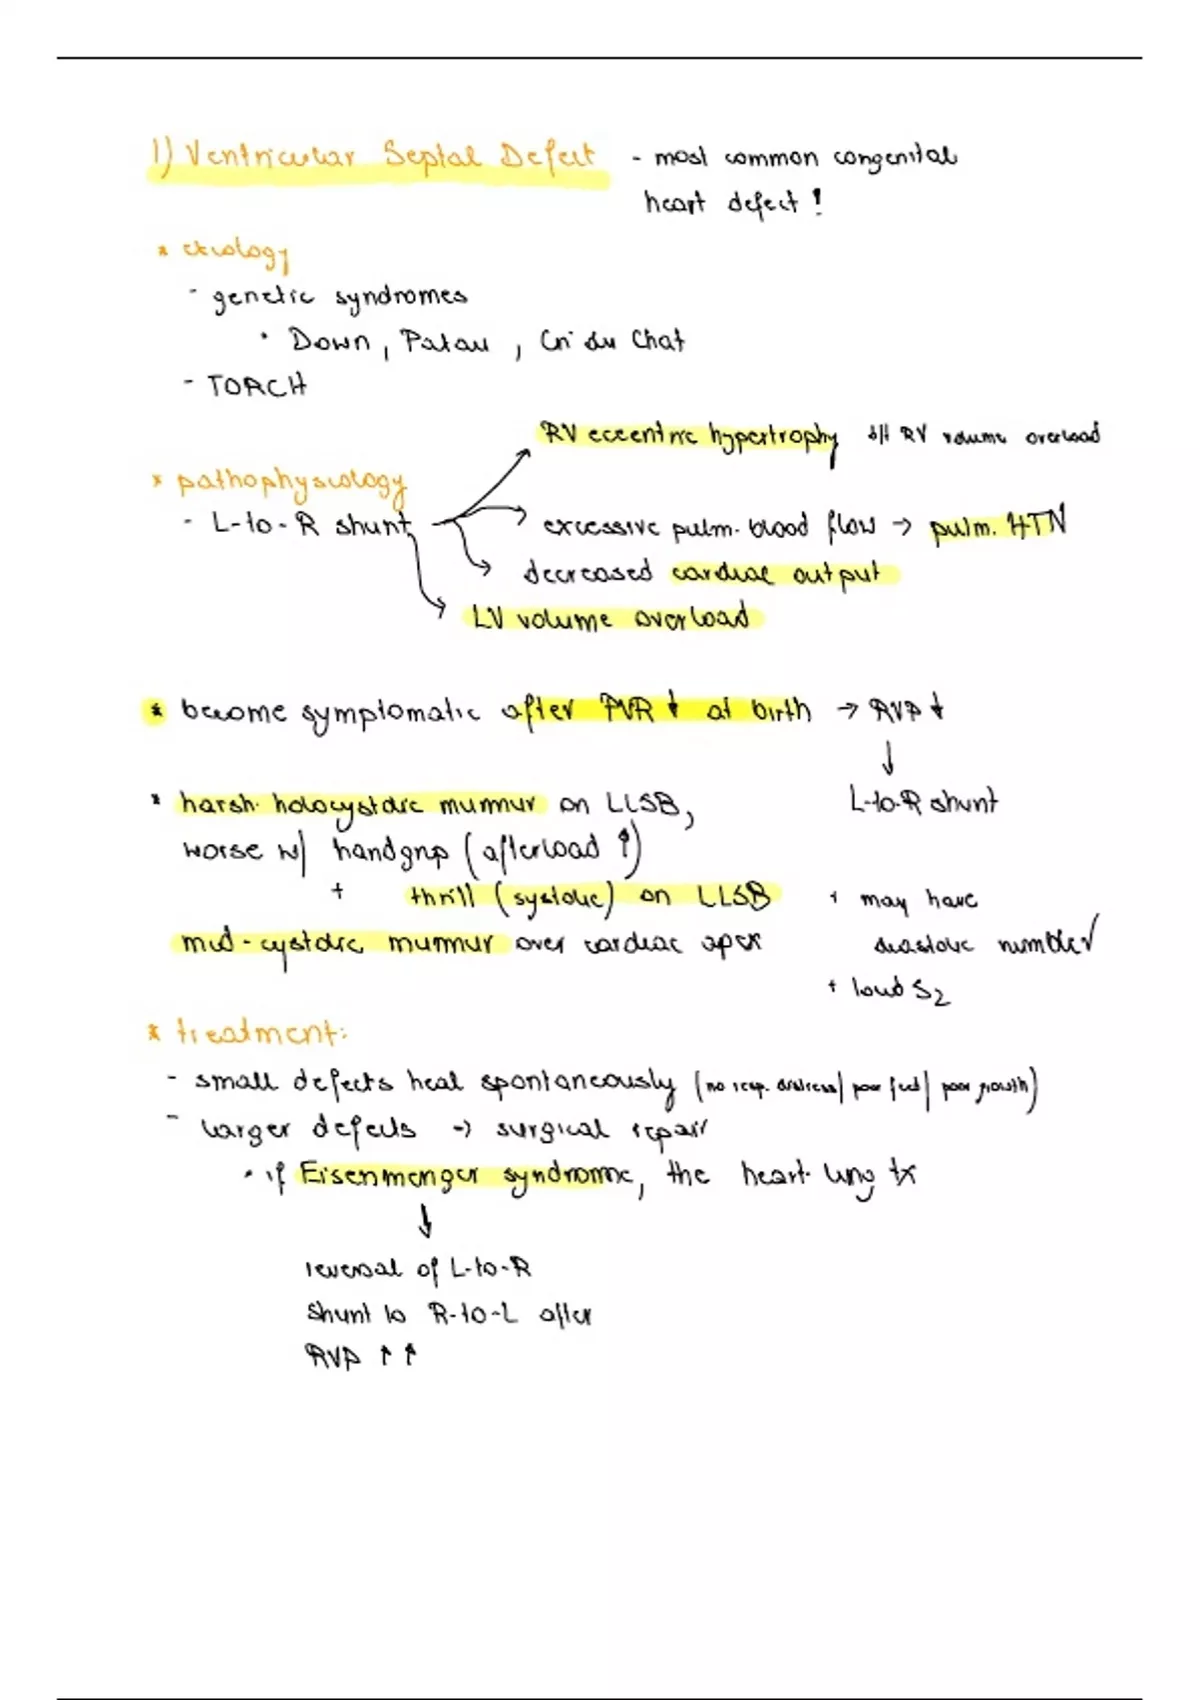 1) Ventricular Septal Defect - most common congenital
heart defect !
* etiology
- genetic syndromes
• Down, Patau, Cri du Chat
- TORCH
RV eccentric hypertrophy d/t RV volume overload
* pathophysiology
- L-to-R shunt → excessive pulm. blood flow → pulm. HTN
decreased cardiac output
LV volume overload
* become symptomatic after PVR ↓ at birth → RVP ↓
↓
L-to-R shunt
* harsh holocystolic murmur on LLSB,
worse w/ handgrip (afterload ↑)
+ thrill (systolic) on LLSB
+ may have
mid-cystolic murmur over cardiac apex
diastolic rumble
+ loud S2
* treatment:
- small defects heal spontaneously (no resp. distress/ poor feed/ poor growth)
- larger defects → surgical repair
• if Eisenmenger syndrome, the heart-lung tx
↓
reversal of L-to-R
shunt to R-to-L after
RVP ↑↑